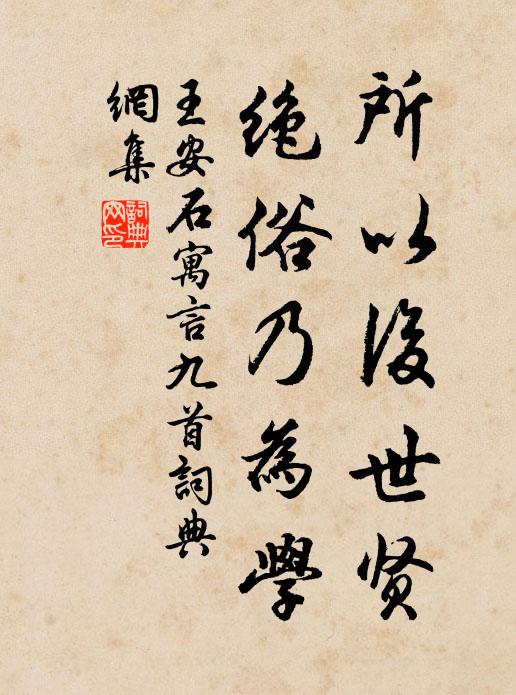 所以後世贤
绝俗乃為學
王安石寓言九首詞典
網集
詞典